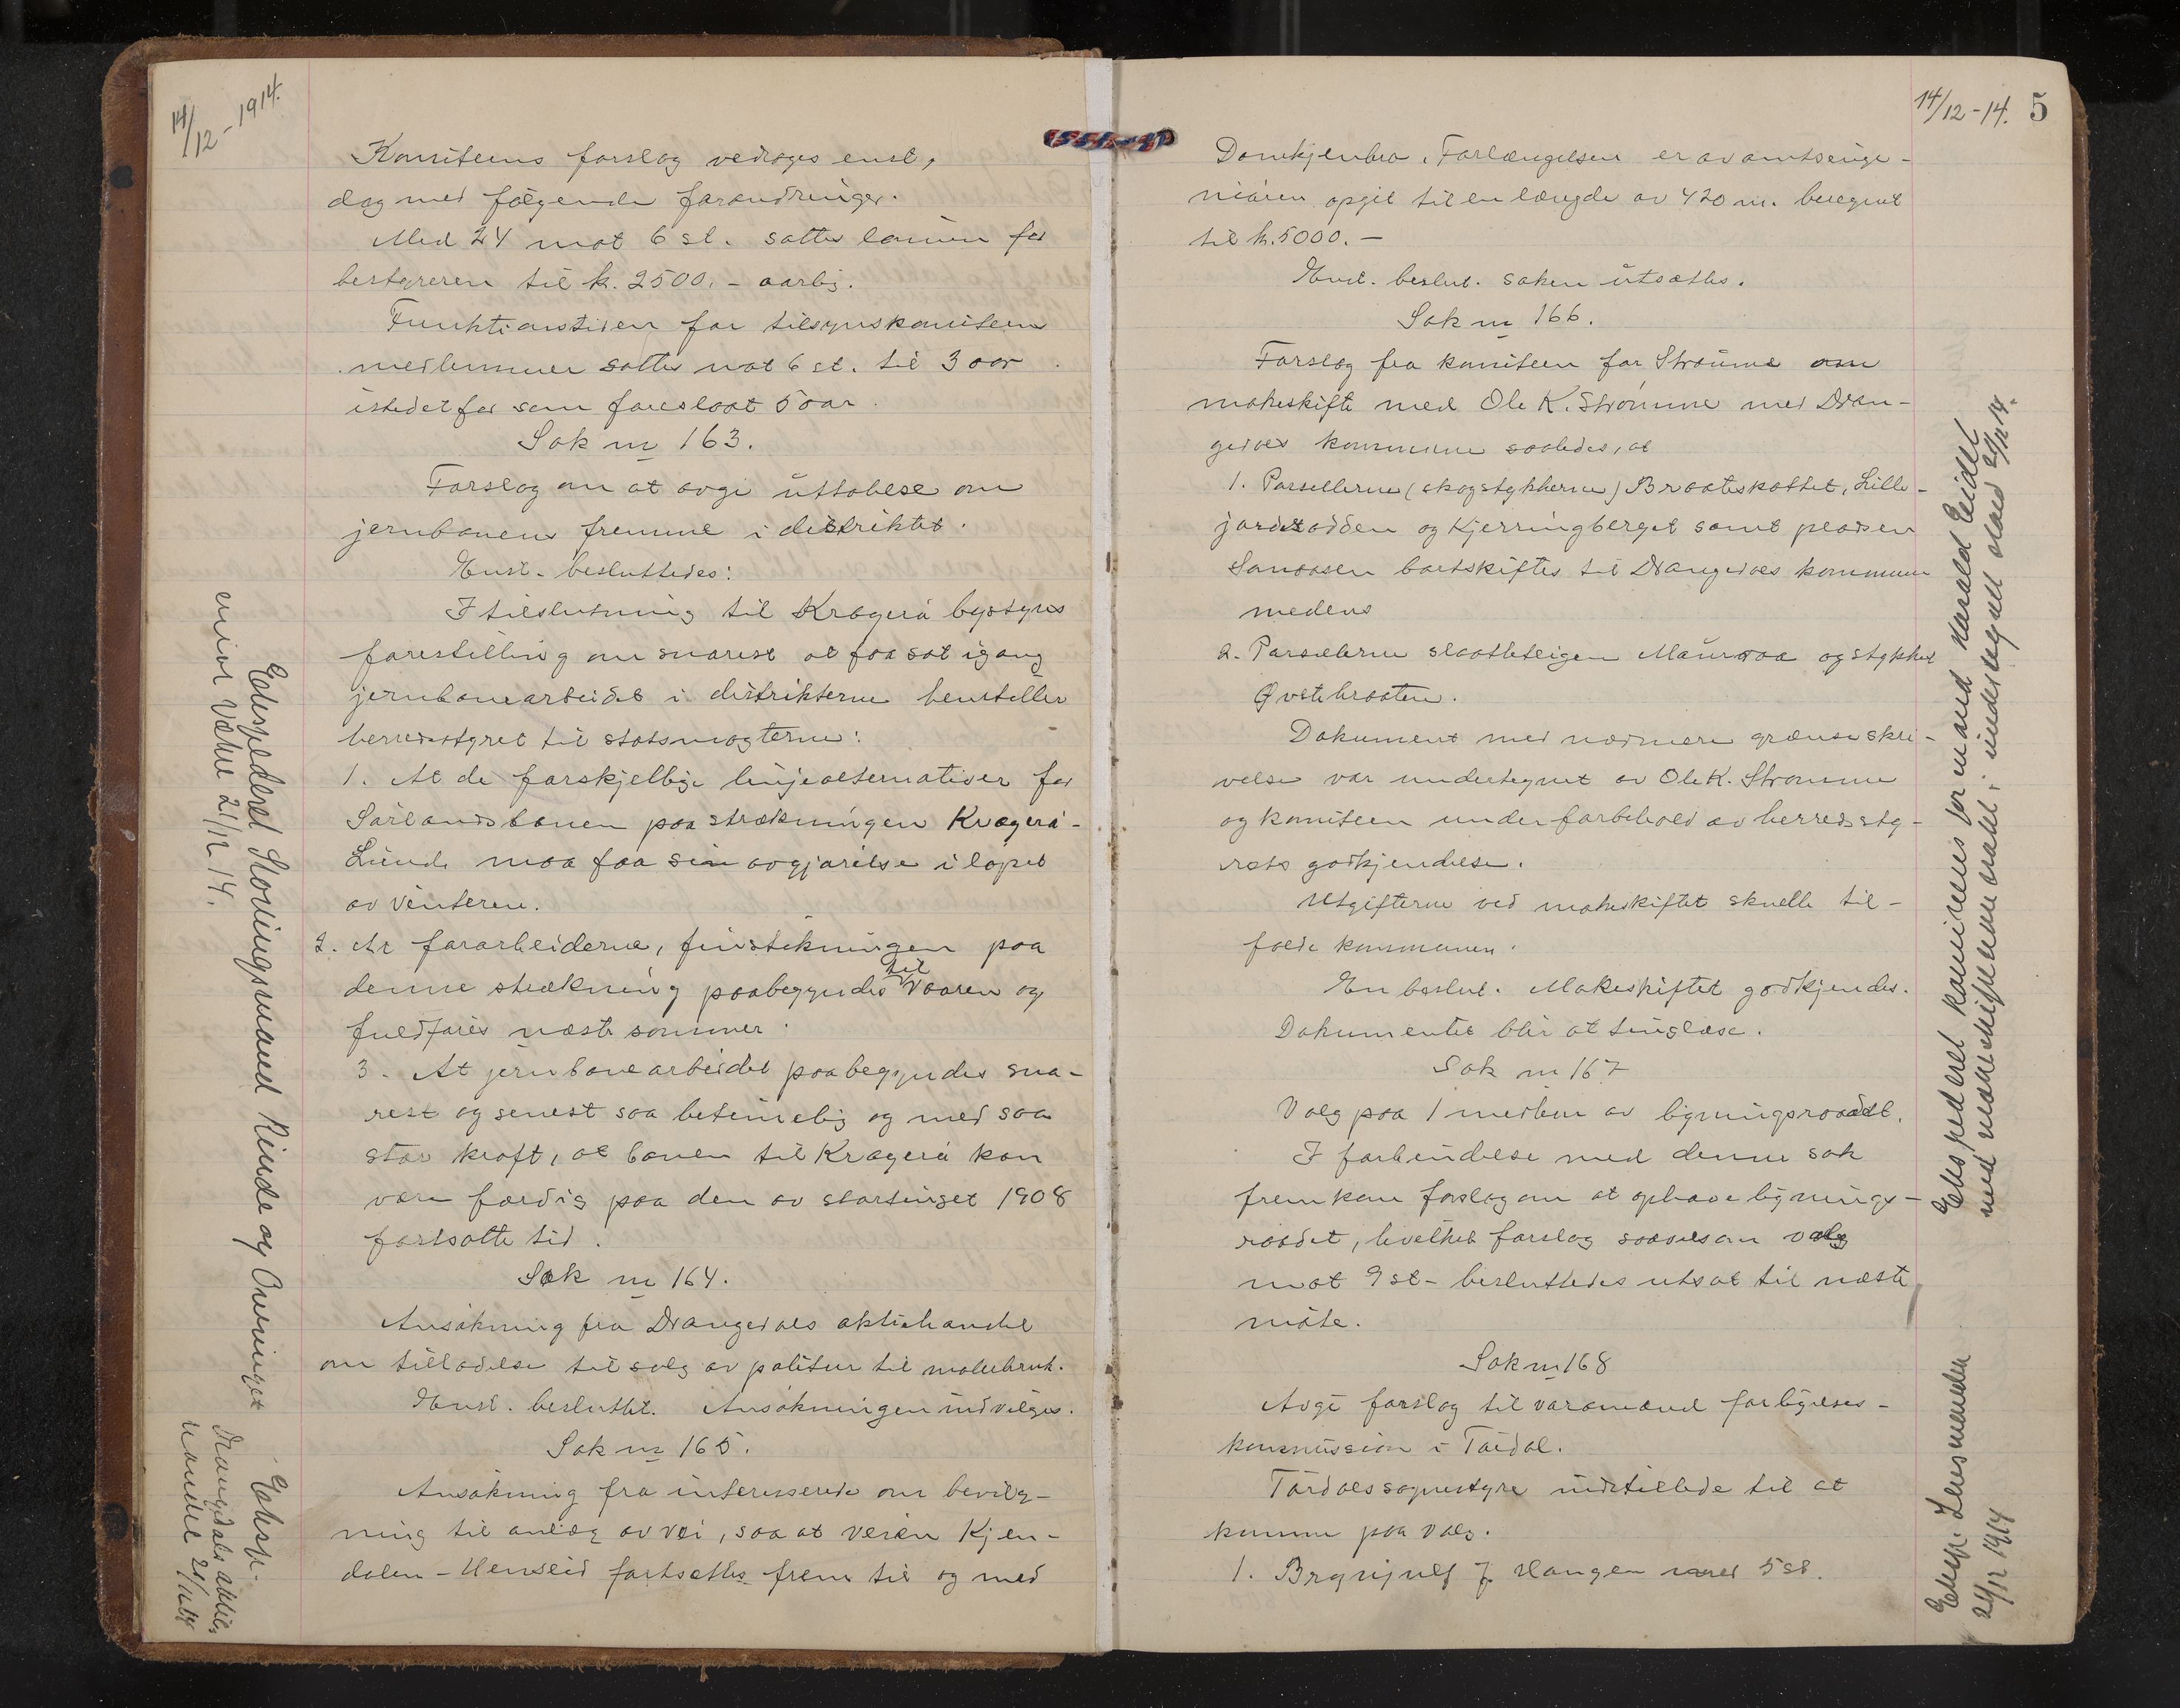 14/12-1914.
Komiteens forslag vedtoges enst,
dog med følgende forandringer.
Med 24 mot 6 st. sattes lønnen for
bestyreren til k. 2500.- aarlig.
Funktionstiden for tilsynskomiteens
medlemmer sattes mot 6 st. til 3 aar
istedetfor som foreslaat 5 aar.
Sak nr 163.
Forslag om at avgi uttalelse om
jernbanens fremme i distriktet.
Enst. besluttedes:
I tilslutning til Kragerø bystyres
forestilling om snarest at faa sat igang
jernbanearbeidet i distrikterne henstiller
herredsstyret til statsmagterne:
1. At de forskjellige linjealternativer for
Sørlandsbanen paa strækningen Kragerø-
Lunde maa faa sin avgjørelse i løpet
av vinteren.
2. At forarbeiderne, finstikningen paa
denne strækning paabegyndes til vaaren og
fuldføres næste sommer.
3. At jernbanearbeidet paabegyndes sna-
rest og senest saa betimelig og med saa
stor kraft, at banen til Kragerø kan
være færdig paa den av stortinget 1908
fastsatte tid.
Sak nr 164.
Ansøkning fra Drangedals aktiehandel
om tilladelse til salg av politur til malerbruk.
Enst. besluttet. Ansøkningen indvilges.
Sak nr 165.
Ansøkning fra interesserede om bevilg-
ning til anlæg av vei, saa at veien Kjen-
dalen-Henseid fortsættes frem til og med
Ekspederet Stortingsmand Rinde og Ovrninget
Væhre 21/12 14.
Eksp.
Drangedals aktie-
handel 21/12 14
14/12-14. 5
Domkjenbro. Forlængelsen er av amtsinge-
niøren opgit til en længde av 420 m. beregnet
til k. 5000.-
Enst. beslut. saken utsættes.
Sak nr 166.
Forslag fra komiteen for Strømme om
makeskifte med Ole K. Strømme med Dran-
gedals kommune saaledes, at
1. Parsellerne (skogstykkerne) Braateskottet, Lille-
jordsodden og Kjerringberget samt pladsen
Sanaasen bortskiftes til Drangedals kommune
medens
2. Parsellerne slaatteteigen Mauraa og stykket
Øvstebraaten.
Dokument med nærmere grænseskri-
velse var undertegnet av Ole K. Strømme
og komiteen under forbehold av herredssty-
rets godkjendelse.
Utgifterne ved makeskiftet skulle til-
falde kommunen.
En beslut. Makeskiftet godkjendes.
Dokumentet blir at tinglæse.
Sak nr 167
Valg paa 1 medlem av ligningsraadet.
I forbindelse med denne sak
fremkom forslag om at ophæve lignings-
raadet, hvilket forslag saavelsom valg
mot 9 st- besluttedes utsat til næste
møte.
Sak nr 168
Avgi forslag til varamænd forligelses-
kommission i Tørdal.
Tørdals sognestyre indstillede til at
komme paa valg.
1. Brynjulf J. Haugen med 5 st.
Ekspederet komiteens formand Harald Eidet
med makeskiftekontrakt i undertegnet stand 21/12 14.
Eksp. Lensmanden
21/12 1914